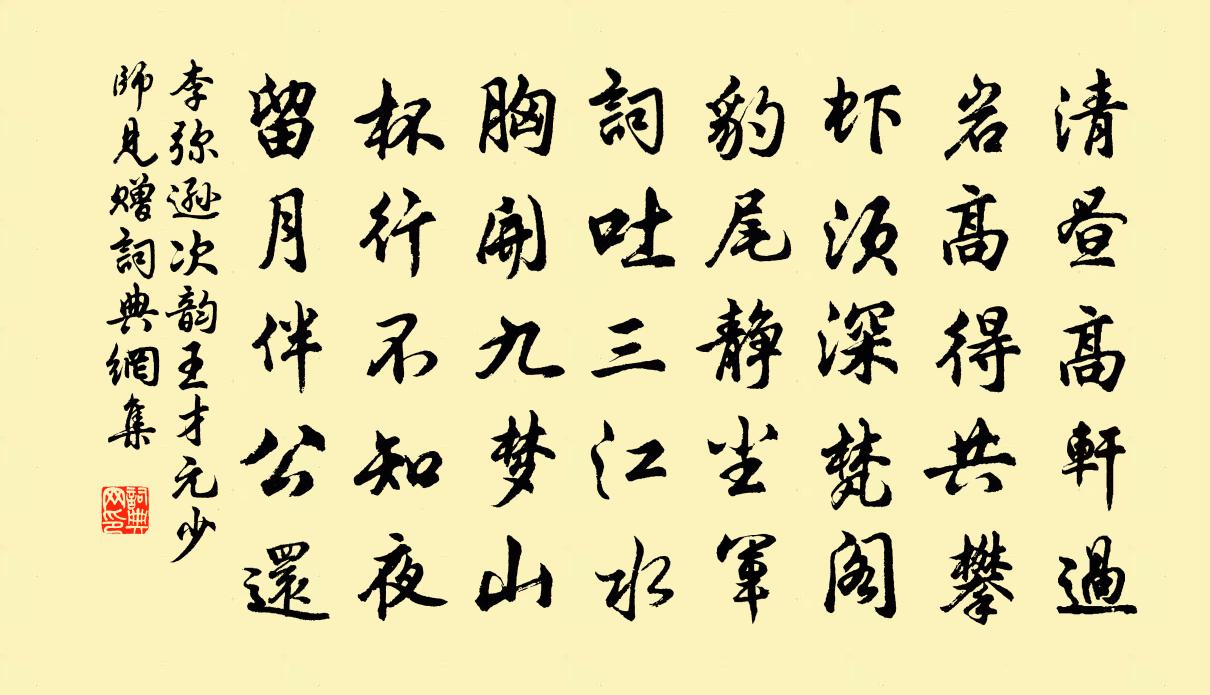 清昼高軒過
岩高得共攀
虾须深梵阁
豹尾静尘軍
詞吐三江水
胸開九梦山
杯行不知夜
留月伴公還
李弥逊次韵王才元少
師見赠詞典網集
詞典
网印